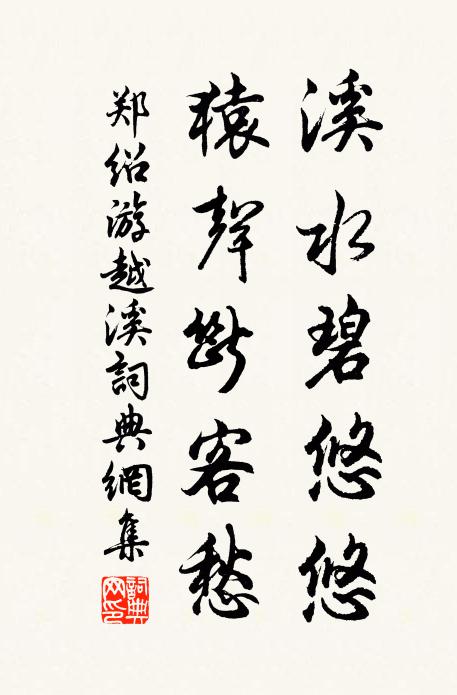 溪水碧悠悠
猿聲斷客愁
郑绍游越溪詞典網集
詞典网印